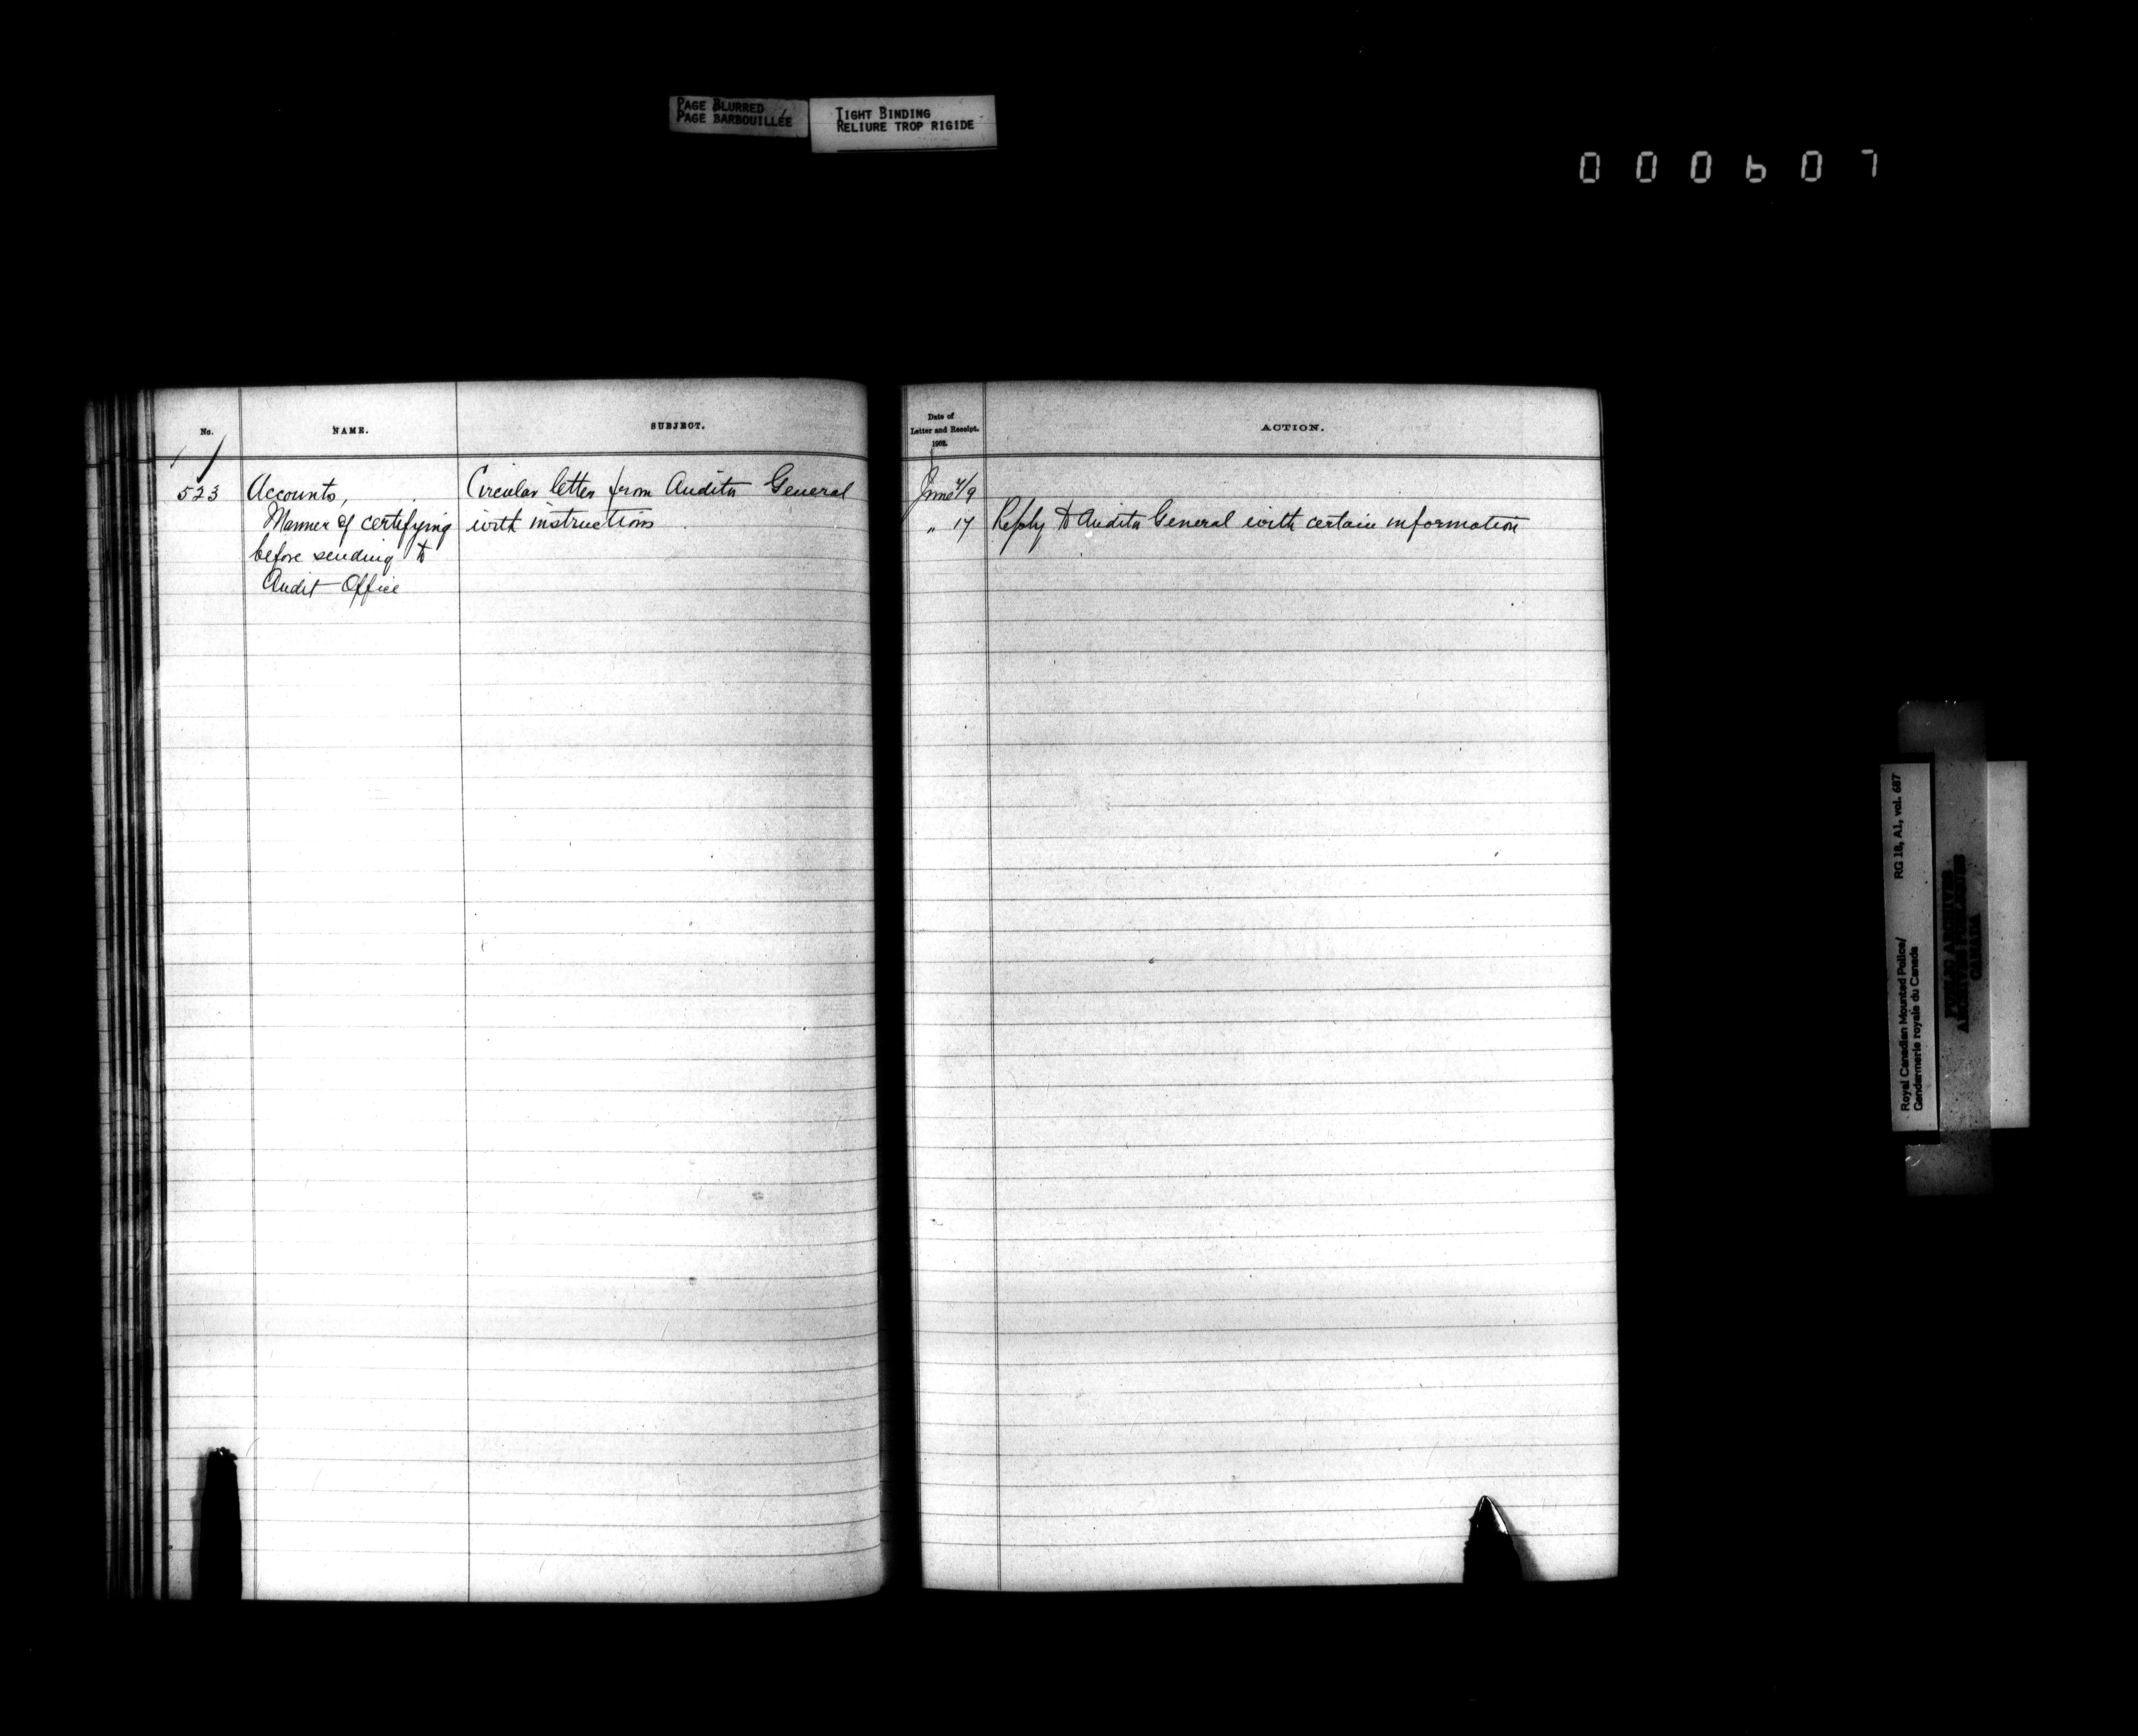 PAGE BLURRED
PAGE BARBOUILLÉE
TIGHT BINDING
RELIURE TROP RIGIDE
000607
No.
NAME.
SUBJECT.
Date of
Letter and Receipt.
1902.
ACTION.
523 Accounts, Circular letter from Auditor General June 7/9
Manner of certifying with instructions " 17 Reply to Auditor General with certain information
before sending to
Audit Office
Royal Canadian Mounted Police/ RG 18, A1, vol. 687
Gendarmerie royale du Canada
PUBLIC ARCHIVES
ARCHIVES PUBLIQUES
CANADA